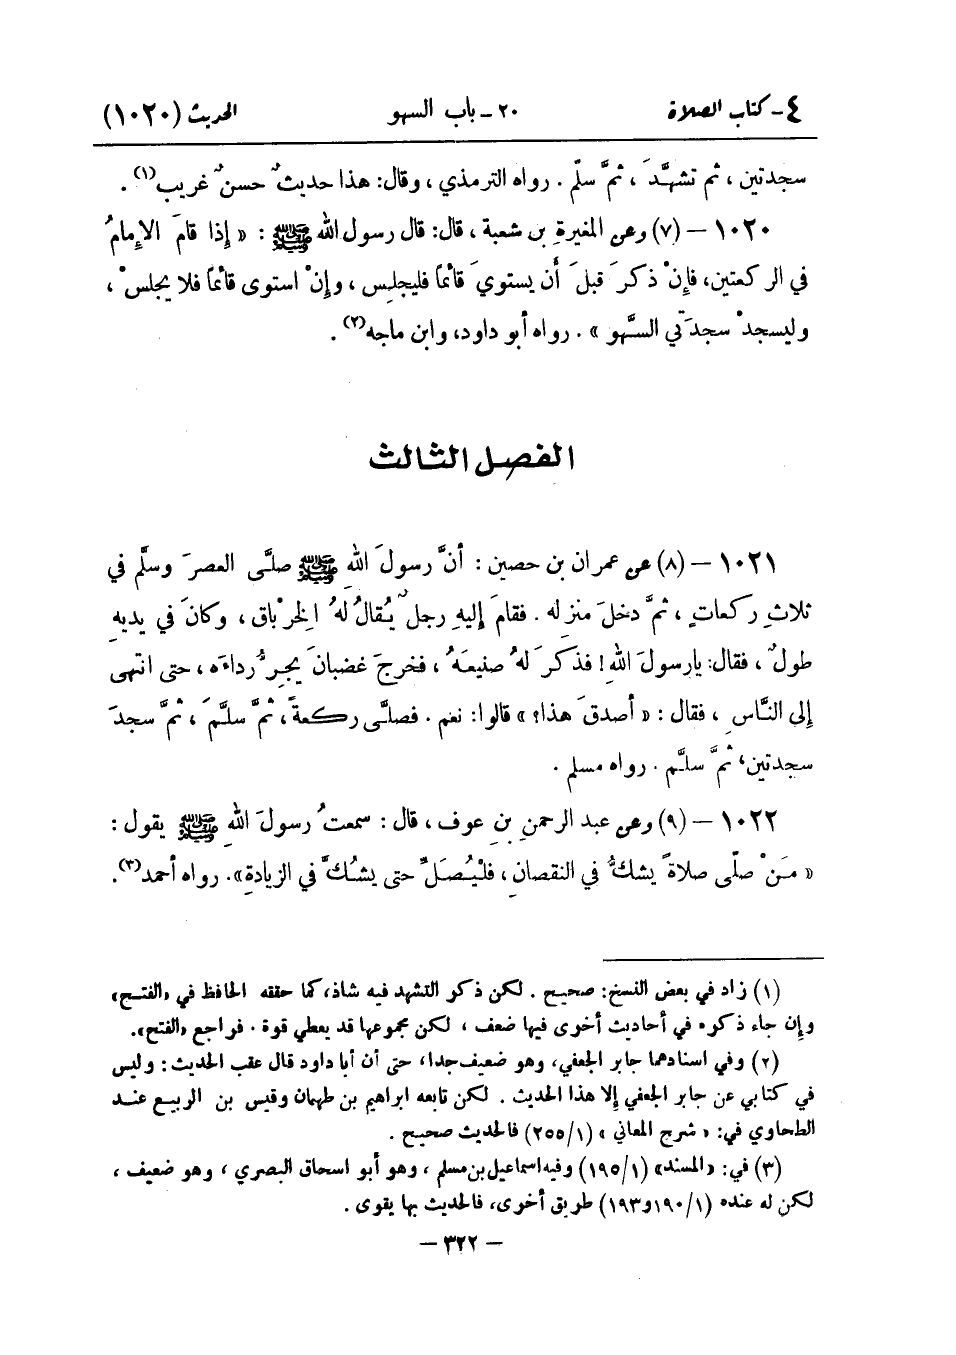 ٤- كتاب الصلاة ٢٠- باب السهو الحديث (١٠٢٠)
سجدتين ، ثم تشهَّدَ ، ثمَّ سلّم . رواه الترمذي ، وقال: هذا حديثٌ حسنٌ غريب(١) .
١٠٢٠ – (٧) وعن المغيرةِ بن شعبة ، قال: قال رسول الله ﷺ : « إذا قامَ الإِمامُ
في الركعتين، فإِنْ ذكرَ قبلَ أن يستويَ قائماً فليجلِس ، وإِنْ استوى قائماً فلا يجلسْ ،
وليسجدْ سجدَتي السَّهو » . رواه أبو داود، وابن ماجه(٢) .
الفصل الثالث
١٠٢١ – (٨) عن عمران بن حصين : أنَّ رسولَ اللهِ ﷺ صلَّى العصرَ وسلَّم في
ثلاثِ ركعاتٍ ، ثمَّ دخلَ منزِله . فقامَ إليهِ رجلٌ يُقالُ لهُ الخِرْباق ، وكانَ في يديهِ
طولٌ ، فقال: يا رسولَ اللهِ! فذكرَ لهُ صنيعَهُ ، فخرجَ غضبانَ يجرُّ رداءَه ، حتى انتهى
إلى النَّاسِ ، فقال : « أصدقَ هذا؟ » قالوا: نعم . فصلَّى ركعةً ، ثمَّ سلَّمَ ، ثمَّ سجدَ
سجدتين، ثمَّ سلَّم . رواه مسلم .
١٠٢٢ – (٩) وعن عبد الرحمنِ بنِ عوف ، قال : سمعتُ رسولَ اللهِ ﷺ يقول :
« مَنْ صلّى صلاةً يشكُّ في النقصانِ ، فلْيُصَلِّ حتى يشُكَّ في الزيادةِ». رواه أحمد(٣).
(١) زاد في بعض النسخ: صحيح . لكن ذكر التشهد فيه شاذ، كما حققه الحافظ في «الفتح»
وإن جاء ذكره في أحاديث أخرى فيها ضعف ، لكن مجموعها قد يعطي قوة . فراجع «الفتح».
(٢) وفي اسنادهما جابر الجعفي، وهو ضعيف جدا، حتى أن أبا داود قال عقب الحديث : وليس
في كتابي عن جابر الجعفي إلا هذا الحديث . لكن تابعه ابراهيم بن طهمان وقيس بن الربيع عند
الطحاوي في: « شرح المعاني » (٢٥٥/١) فالحديث صحيح .
(٣) في: «المسند» (١٩٥/١) وفيه اسماعيل بن مسلم ، وهو أبو اسحاق البصري ، وهو ضعيف ،
لكن له عنده (١٩٠/١و١٩٣) طريق أخرى، فالحديث بها يقوى .
– ٣٢٢ –